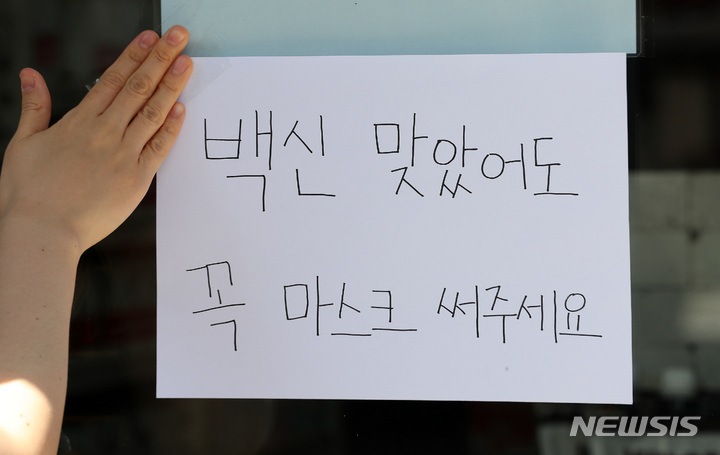 백신 맞았어도
꼭 마스크 써주세요
NEWSIS